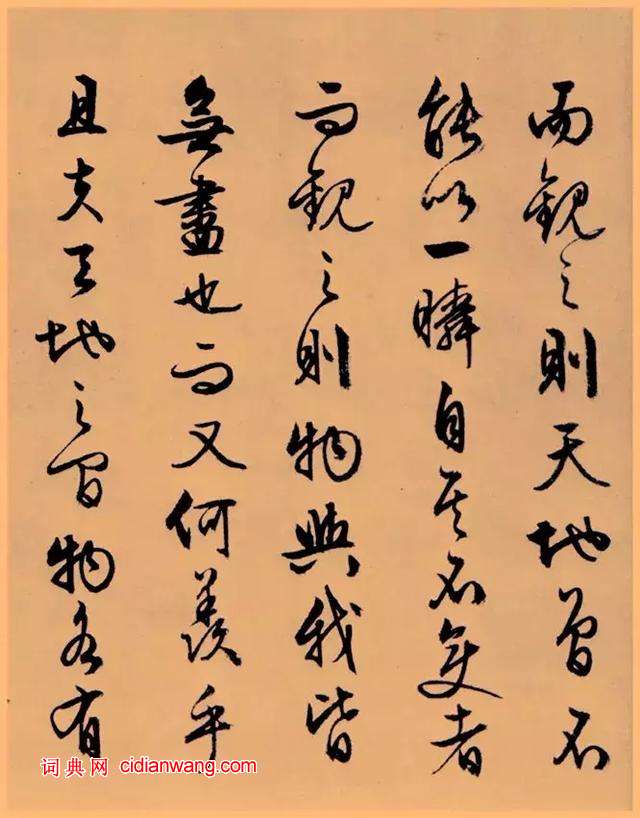 而觀之則天地曾不
能以一瞬自其不變者
而觀之則物與我皆
無盡也而又何羨乎
且夫天地之間物各有
词典网 cidianwang.com